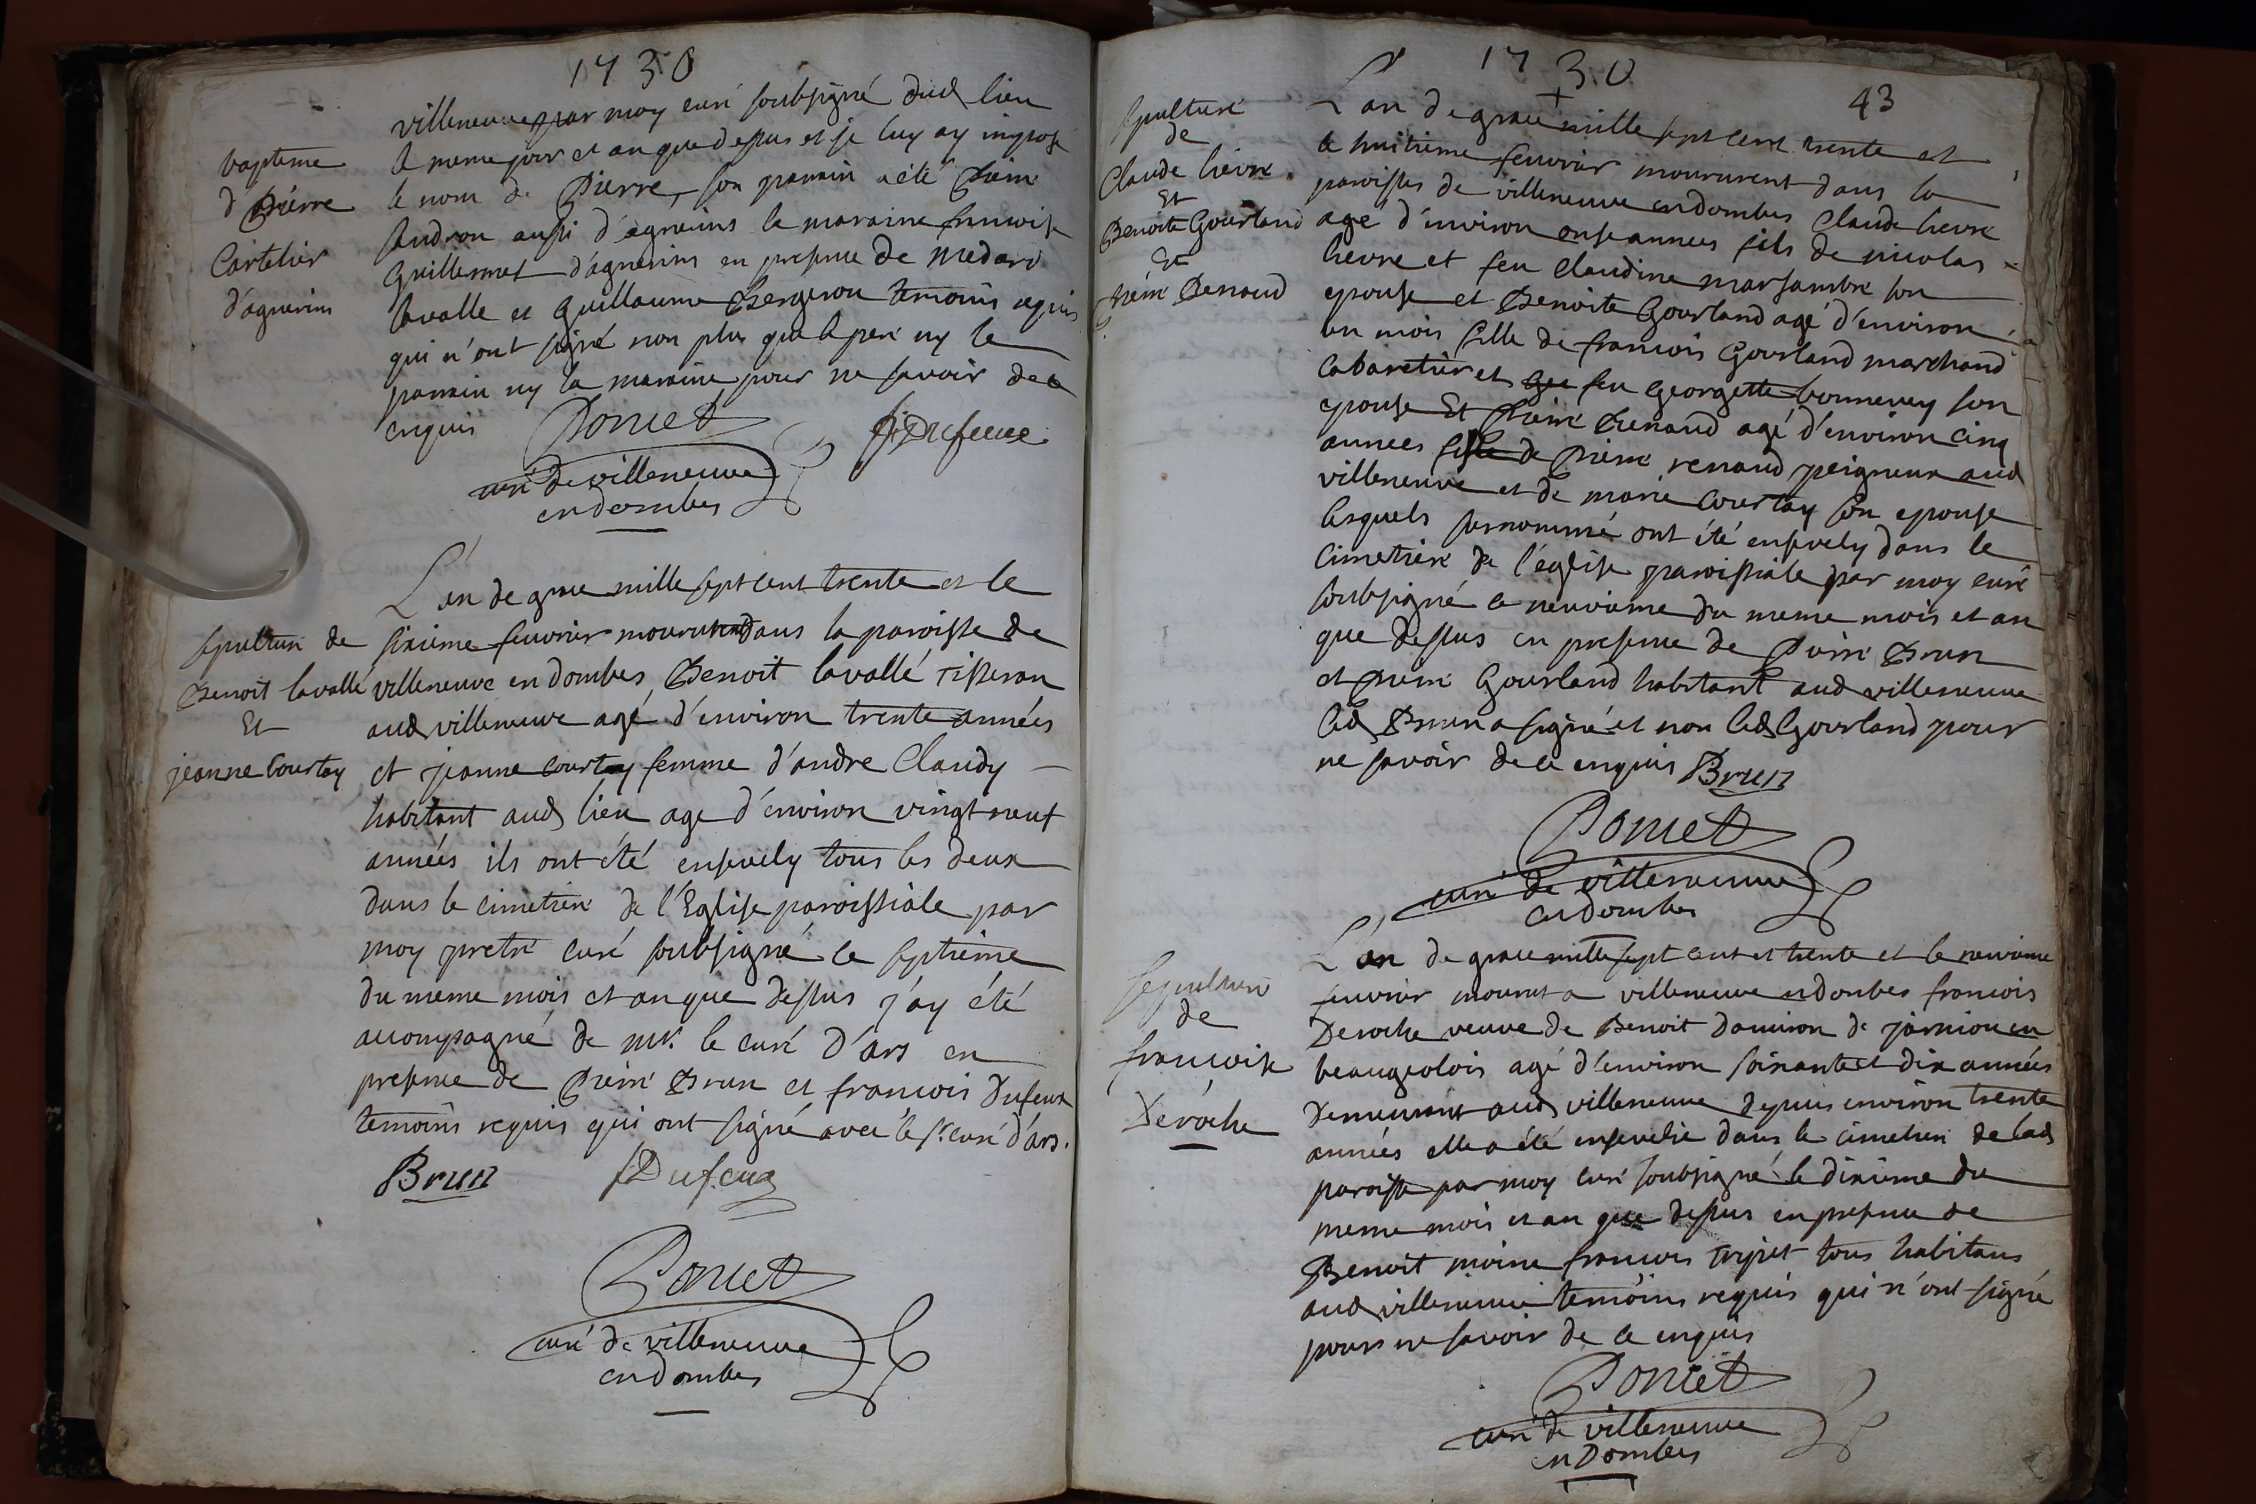 1730
villeneuve par moy curé soubsigné dud lieu
le meme jour et an que dessus et je luy ay imposé
le nom de Pierre, son parrain a été Pierre
Sandron aussi d'agnerins la maraine francoise
Guillermet d'agnerins en presence de Medard
lavalle et Guillaume Bergeron temoins requis
qui n'ont signé non plus que le pere ny le
parrain ny la maraine pour ne savoir de ce
enquis
baptème
d Pierre
Cartelier
d'agnerins
Poncet
curé de villeneuve
en dombes
f Dufeux
L'an de grace mille sept cent trente et le
sixième feuvrier moururent dans la paroisse de
villeneuve en dombes Benoit lavallé Tisseran
aud villeneuve agé d'environ trente années
et jeanne courtay femme d'andre Claudy
habitant aud lieu age d'environ vingt neuf
années ils ont été ensevely tous les deux
dans le cimetière de l'Eglise paroissiale par
moy pretre curé soubsigné le septième
du meme mois et an que dessus j'ay été
acompagné de mr. le curé d'ars en
presence de Pierre Brun et francois Dufeux
temoins requis qui ont signé avec le sr curé d'ars.
sepulture de
Benoit lavallé
Et
jeanne Courtay
Brun
f Dufeux
Poncet
curé de villeneuve
en dombes
1730
43
L'an de grace mille sept cent trente et
le huitième feuvrier moururent dans la
paroisses de villeneuve en dombes Claude lievre
age d'environ onse années fils de nicolas
lievre et feu Claudine marsambre son
epouse et Benoite Gourland agé d'environ
un mois fille de francois Gourland marchand
Cabaretier et feu Georgette bonnevey son
epouse Et Pierre Renaud agé d'environ cinq
années fils de Pierre renaud peigneur aud
villeneuve et de marie Courtay son epouse
lesquels surnommé ont été ensevely dans le
cimetière de l'église paroissiale par moy curé
soubsigné le neuvième du meme mois et an
que dessus en presence de Pierre Brun
et Pierre Gourland habitant aud villeneuve
led Brun a signé et non led Gourland pour
ne savoir de ce enquis Brun
sepulture
de
Claude lievre
Et
Benoite Gourland
Et
Pierre Renaud
Poncet
curé de villeneuve
en dombes
L'an de grace mille sept cent et trente et le neuvième
feuvrier mourut a villeneuve en dombes francois
Deroche veuve de Benoit Damiron de jarnioux en
beaugeolois agé d'environ soixante et dix années
Demeurant aud villeneuve depuis environ trente
années elle a été ensevelie dans le cimetière de lad
paroisse par moy curé soubsigné le dixième du
meme mois et an que dessus en presence de
Benoit moine francois Tripet tous habitans
aud villeneuve temoins requis qui n'ont signé
pour ne savoir de ce enquis
Sepulture
de
francoise
Deroche
Poncet
curé de villeneuve
en Dombes